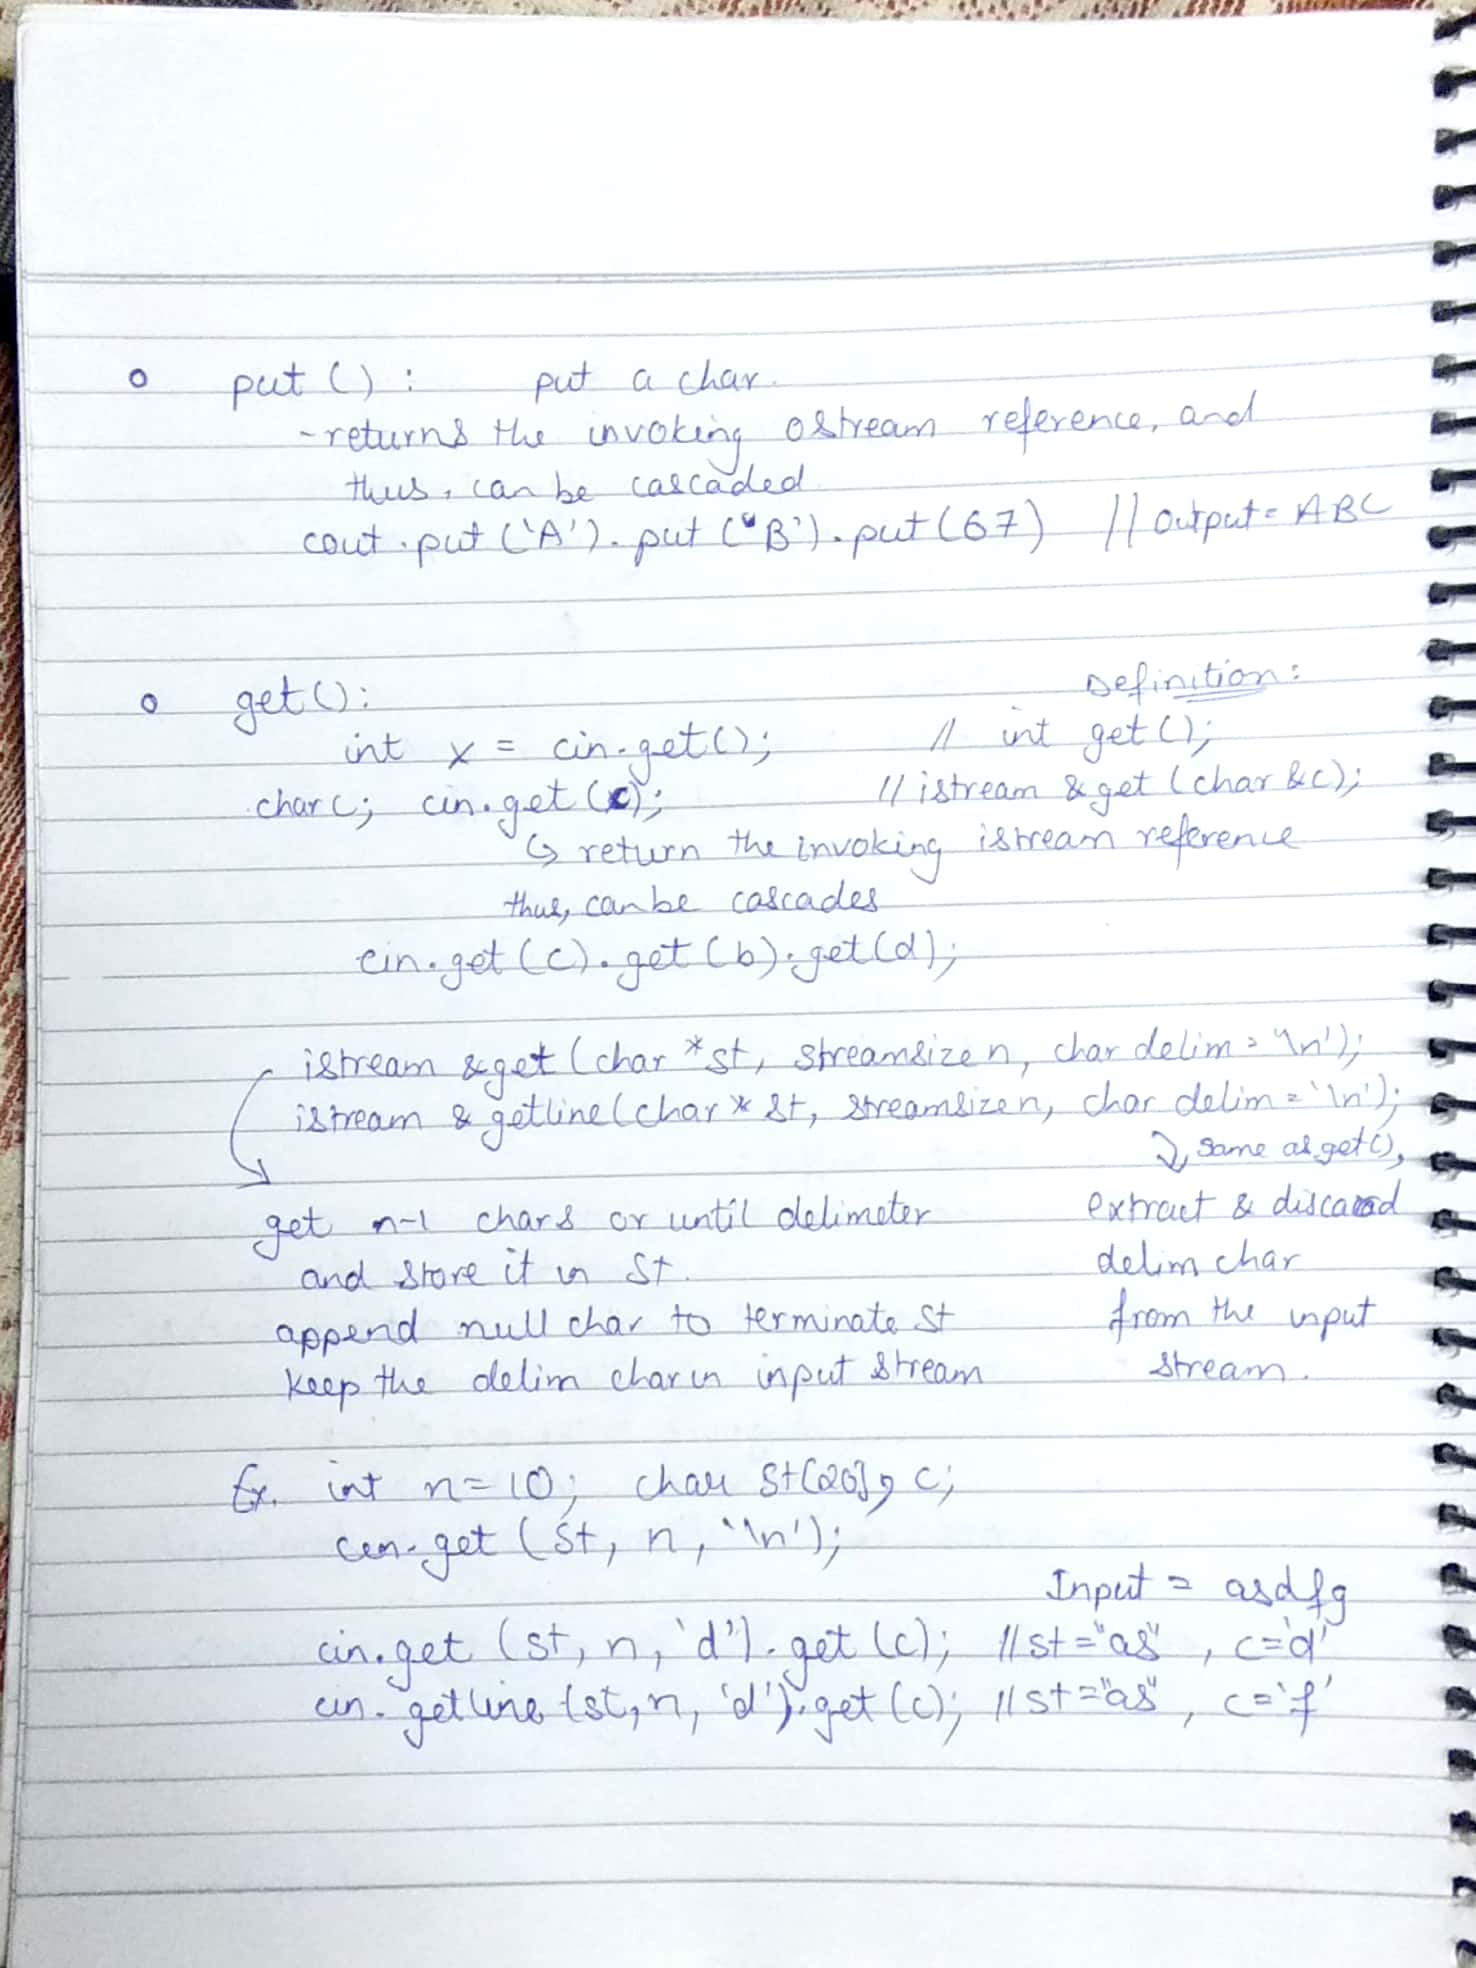 o put () : put a char.
- returns the invoking ostream reference, and
thus, can be cascaded
cout.put ('A').put ('B').put (67) // output = ABC
o get(): Definition:
int x = cin.get(); // int get();
char c; cin.get(c); // istream &get (char &c);
↳ return the invoking istream reference
thus, can be cascades
cin.get (c).get (b).get(d);
istream &get (char *st, streamsize n, char delim = '\n');
istream & getline(char * st, streamsize n, char delim = '\n');
↴ same as get(),
get n-1 chars or until delimeter extract & discard
and store it in St. delim char
append null char to terminate St from the input
keep the delim char in input stream stream.
Ex. int n = 10; char St[20], c;
cin.get (St, n, '\n');
Input = asdfg
cin.get (st, n, 'd').get (c); // st = "as", c = 'd'
cin.getline (st, n, 'd').get (c); // st = "as", c = 'f'